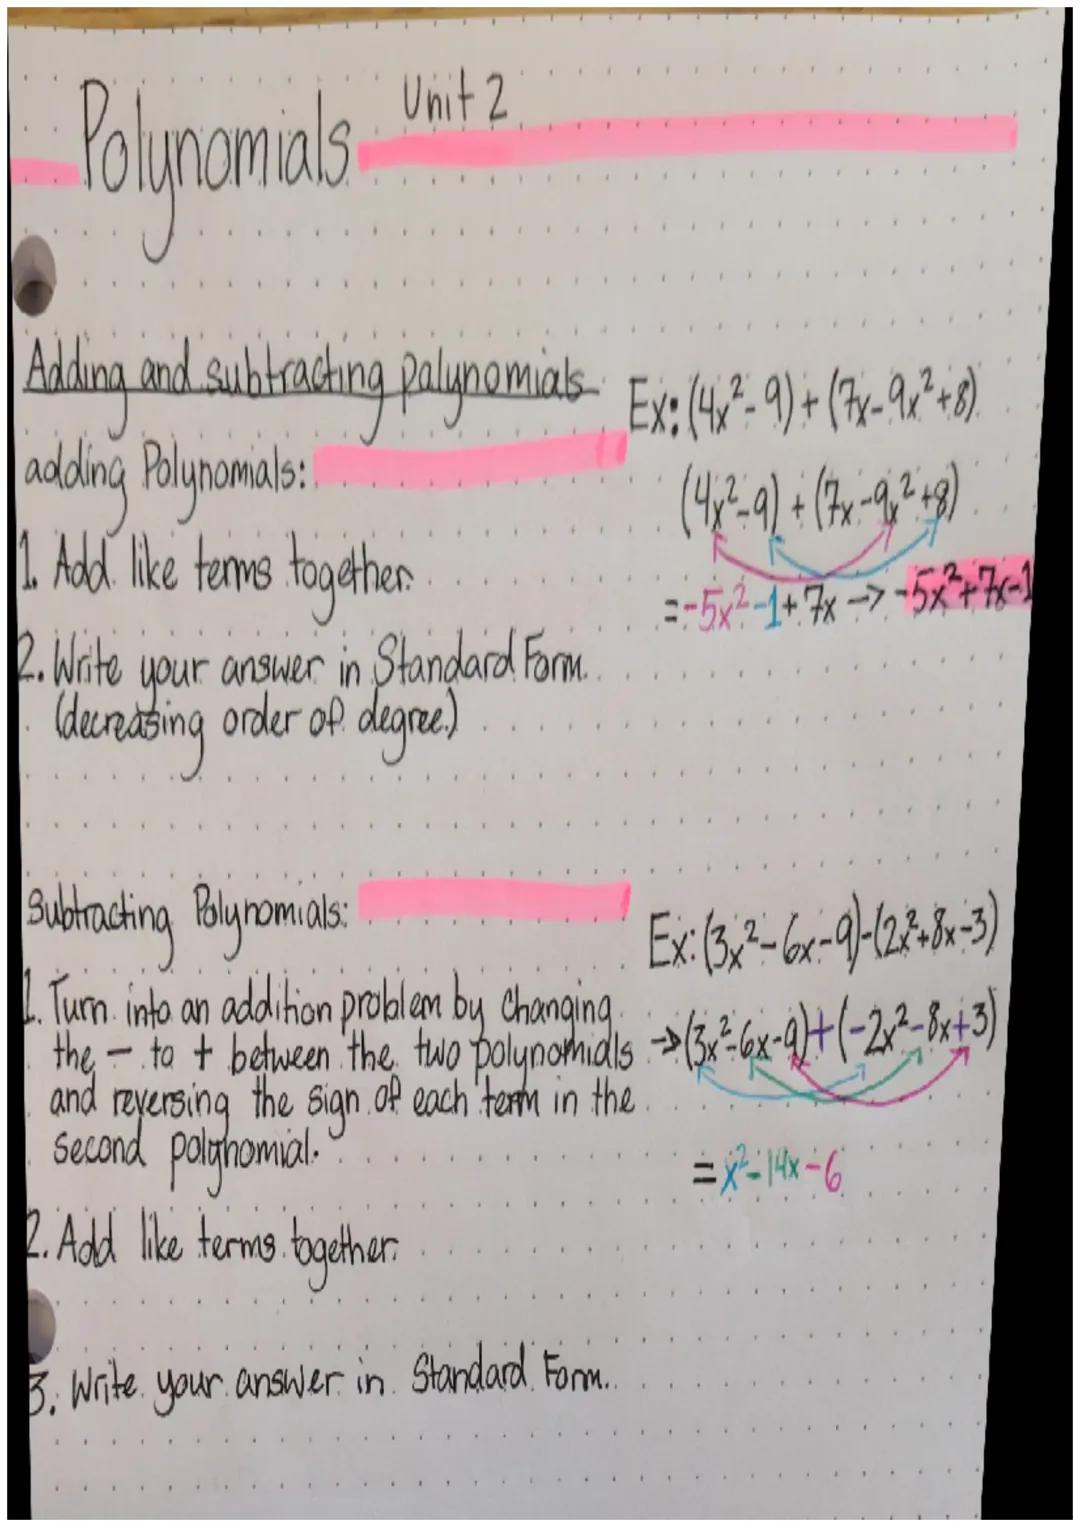 Polynomials Unit 2
Adding and subtracting palynomials
adding Polynomials:
1. Add like terms together.
2. Write your answer in Standard Form.
(decreasing order of degree.)
Ex: (4x²-9) + (7x-9x²+8)
(4x²-9) + (7x-9x²+8)
=-5x²-1+7x -> -5x²+7x-1
Subtracting Polynomials:
1. Turn into an addition problem by changing
the - to + between the two polynomials
and reversing the sign of each term in the
second polynomial.
2. Add like terms together.
3. Write your answer in Standard Form.
Ex: (3x²-6x-9)-(2x²+8x-3)
→(3x²-6x-9)+(-2x²-8x+3)
=x²-14x-6